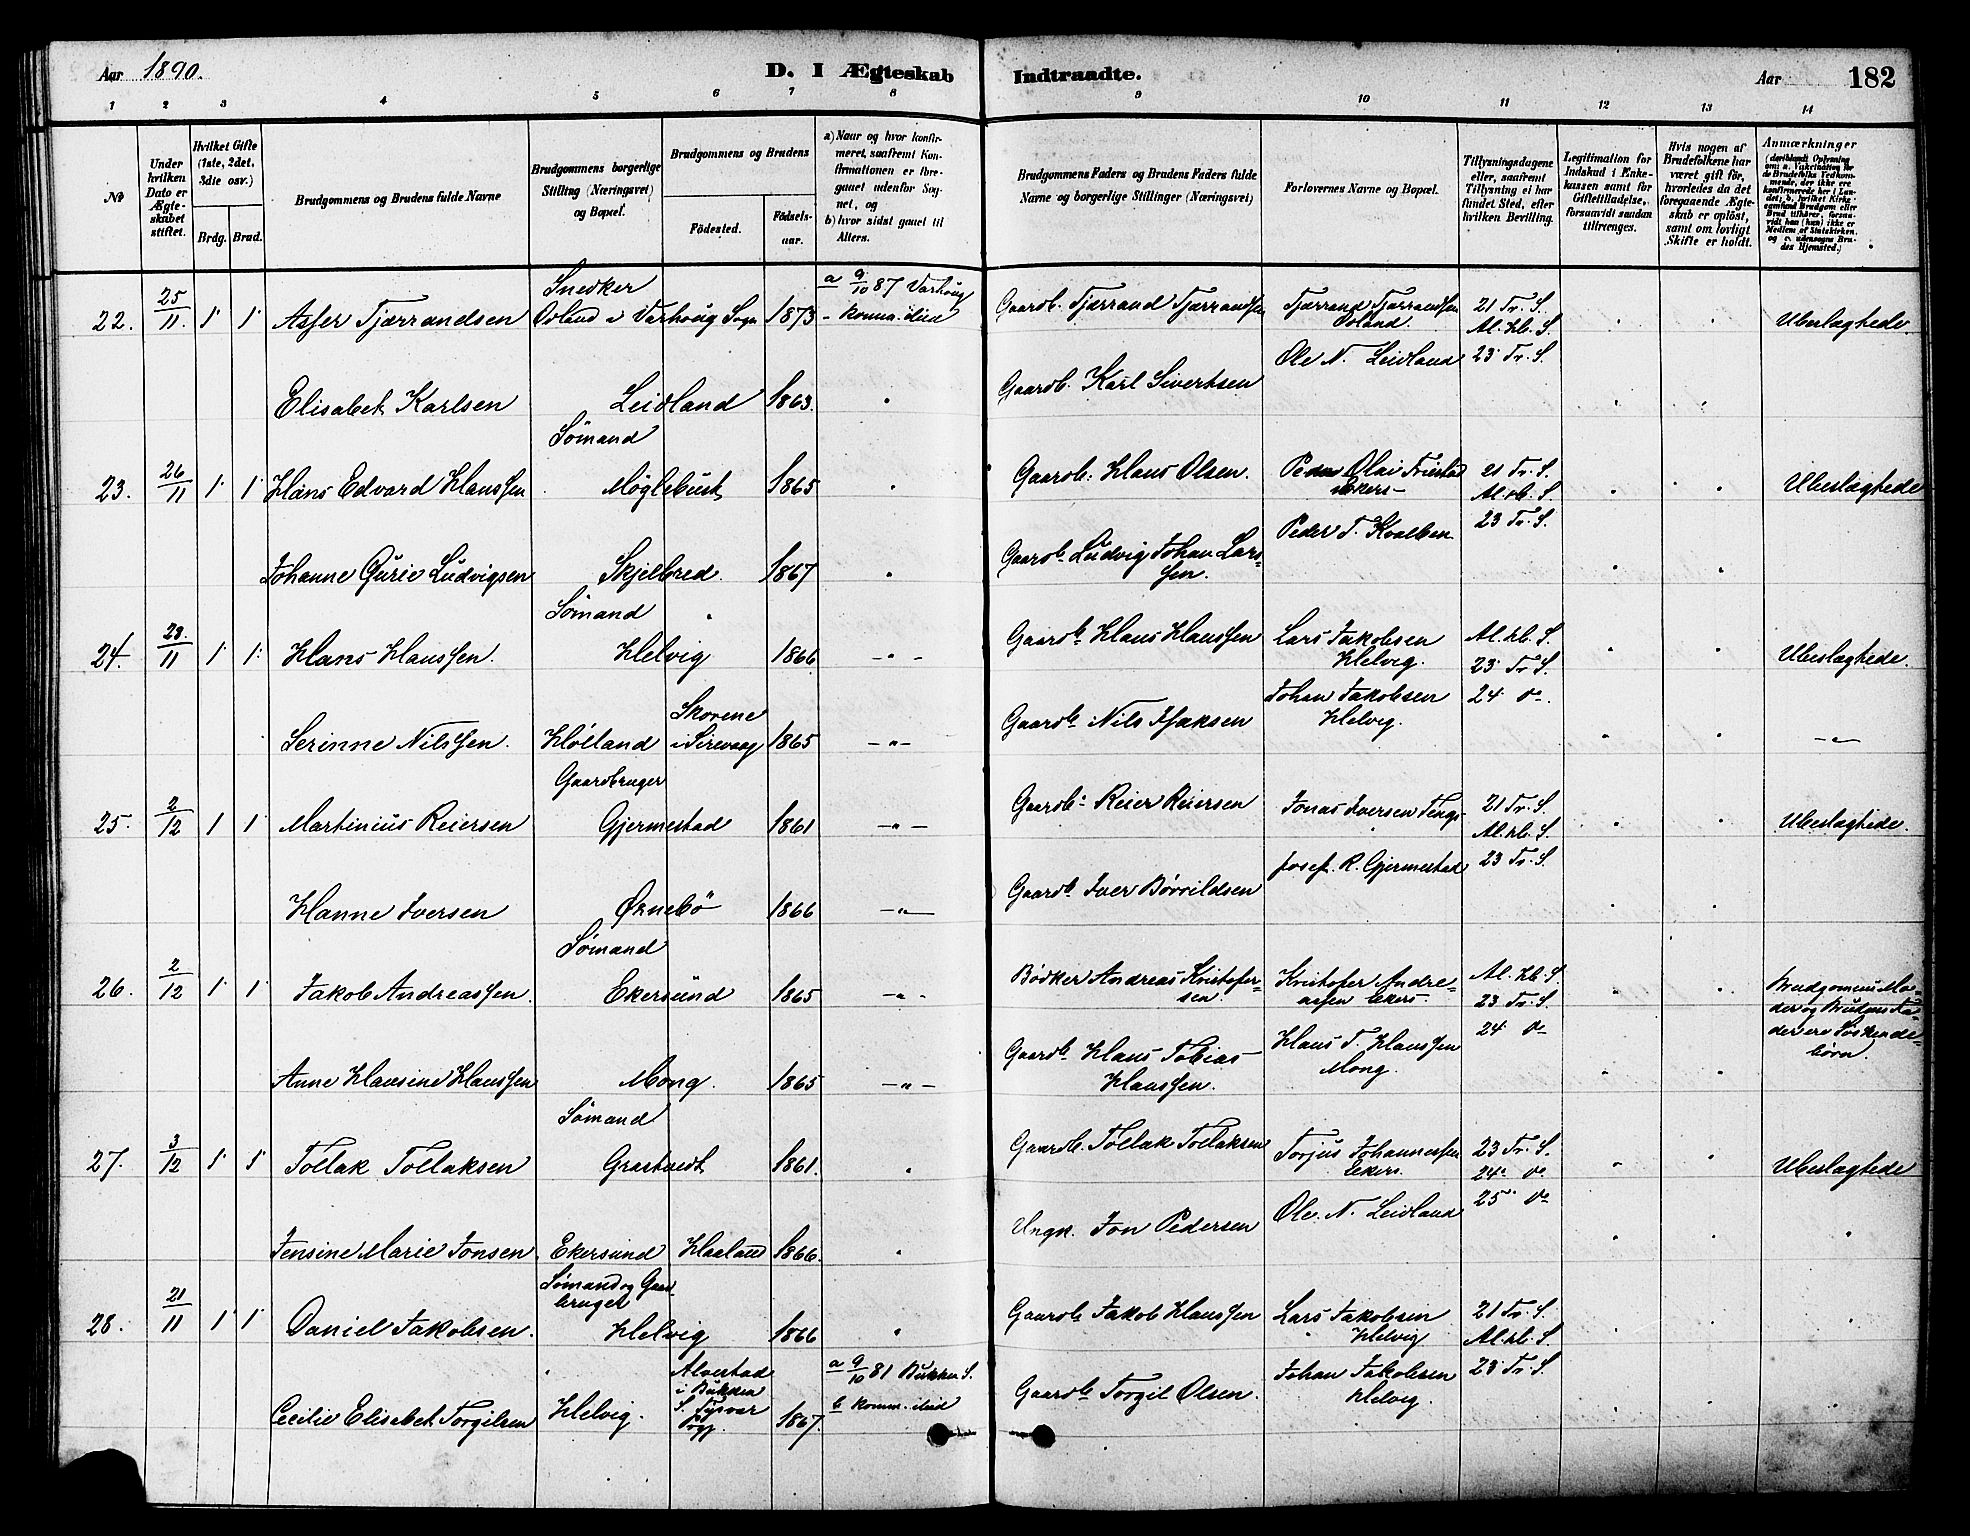 Aar 1890.
D. I Ægteskab
Indtraadte.
Aar
182
1 2 3 4 5 6 7 8 9 10 11 12 13 14
No
Under hvilken Dato er Ægteskabet stiftet.
Hvilket Gifte (1ste, 2det, 3die osv.)
Brdg. Brud.
Brudgommens og Brudens fulde Navne
Brudgommens borgerlige Stilling (Næringsvei) og Bopæl.
Brudgommens og Brudens
Fødested.
Fødselsaar.
a) Naar og hvor konfirmeret, saafremt Konfirmationen er foregaaet udenfor Sognet, og
b) hvor sidst gaaet til Alters.
Brudgommens Faders og Brudens Faders fulde Navne og borgerlige Stillinger (Næringsvei)
Forlovernes Navne og Bopæl.
Tillysningsdagene eller, saafremt Tillysning ei har fundet Sted, efter hvilken Bevilling.
Legitimation for Indskud i Enkekassen samt for Giftetilladelse, forsaavidt saadan tiltrænges.
Hvis nogen af Brudefolkene har været gift før, hvorledes da det foregaaende Ægteskab er opløst, samt om lovligt Skifte er holdt.
Anmærkninger
22. 25/11 1 1 Asser Tjærrandsen
Snedker
i Varhoug Sogn 1873
a 9/10 87 Varhoug
Gaardb. Tjærrand Tjærrandsen
Tjærrand Tjærrandsen
21 Tr. S.
23 Tr. S.
Ubeslægtede
Elisabet Karlsen Leidland 1863
Gaardb. Karl Sivertsen
Ole N. Leidland
23. 26/11 1 1 Hans Edvard Hanssen
Sømand
Møglebust 1865
Gaardb. Hans Olsen.
Peder Olai Friestad
Ekers-
21 Tr. S.
23 Tr. S.
Ubeslægtede
Johanne Gurie Ludvigsen Skjelbred. 1867
Gaardb. Ludvig Johan Larssen.
Peder T. Kvalben
24. 11 1 1 Hans Hanssen.
Sømand
Helvig 1866 - " -
Gaardb. Hans Hanssen
Lars Jakobsen
Helvig.
23 Tr. S.
24
Ubeslægtede.
Serinne Nilssen. Hølland
i Sirevaag 1865 - " -
Gaardb. Nils Isaksen
Johan Jakobsen
Helvig.
- " -
25. 2/12 1 1 Martinius Reiersen
Gaardbruger
Gjermestad 1861 - " -
Gaardb. Reier Reiersen
Jonas Iversen Tengs
21 Tr. S.
23 Tr. S.
Ubeslægtede.
Hanne Iversen Øknebö 1866 - " -
Gaardb. Iver
Josef R. Gjermestad
26. 2/12 1 1 Jakob Andreassen.
Sømand
Ekersund 1865 - " -
Bødker Andreas Kristofersen.
Kristofer Andreassen Ekers.
23 Tr. S.
24
Brudgommens Moder og Brudens Fader ere Søskendebørn.
Anne Hansine Hanssen Mong. 1865 - " -
Gaardb. Hans Tobias Hanssen.
Hans T. Hanssen
Mong.
27. 3/12 1 1 Tollak Tollaksen
Sømand
Grastvedt 1861.
Gaardb. Tollak Tollaksen
Torjus Johannessen
Ekers.
23 Tr. S.
24
25
Ubeslægtede
Jensine Marie Jonsen Ekersund Haaland 1866.
Ungk. Jon Pedersen
Ole N. Leidland
28. 21/11 1 1 Daniel Jakobsen.
Sømand og Gaardbruger
Helvig 1866
Gaardb. Jakob Hanssen
Lars Jakobsen
Helvig
21 Tr. S.
23 Tr. S.
Cecilie Elisabet Torgilsen Helvig.
Alvestad
i Bukken
S. Tysvær
1867.
a 9/10 81 Bukken S.
Gaardb. Torgil Olsen.
Johan Jakobsen
Helvig.